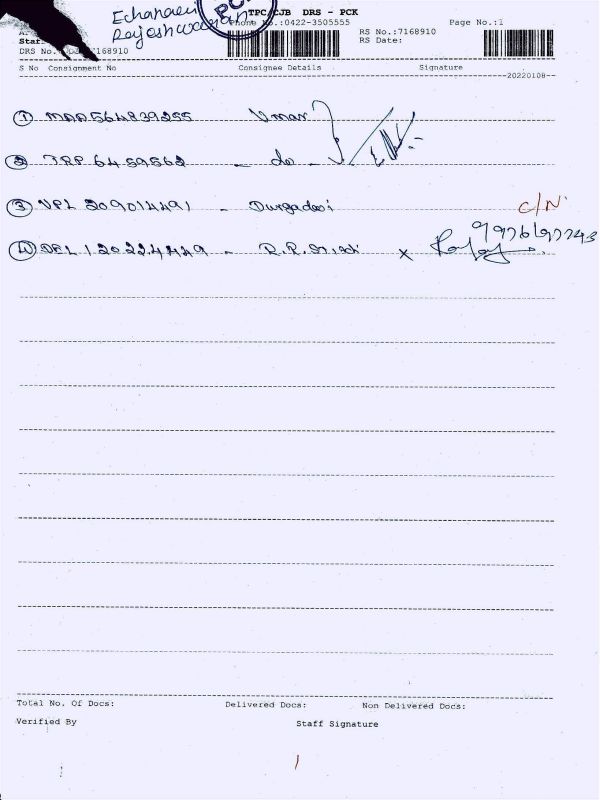 Rajeshwaran
TPC/CJB DRS - PCK
Phone No.:0422-3505555 Page No.:1
RS No.:7168910
RS Date:
DRS No. 7168910
S No Consignment No Consignee Details Signature
20220108
① MAA564839255 - Umar
② TRP 6459562 - do -
③ VPL 209014491 - Durgadevi
C/N
④ DEL 120224449 - R.R. x 9976197743
Total No. Of Docs: Delivered Docs: Non Delivered Docs:
Verified By Staff Signature